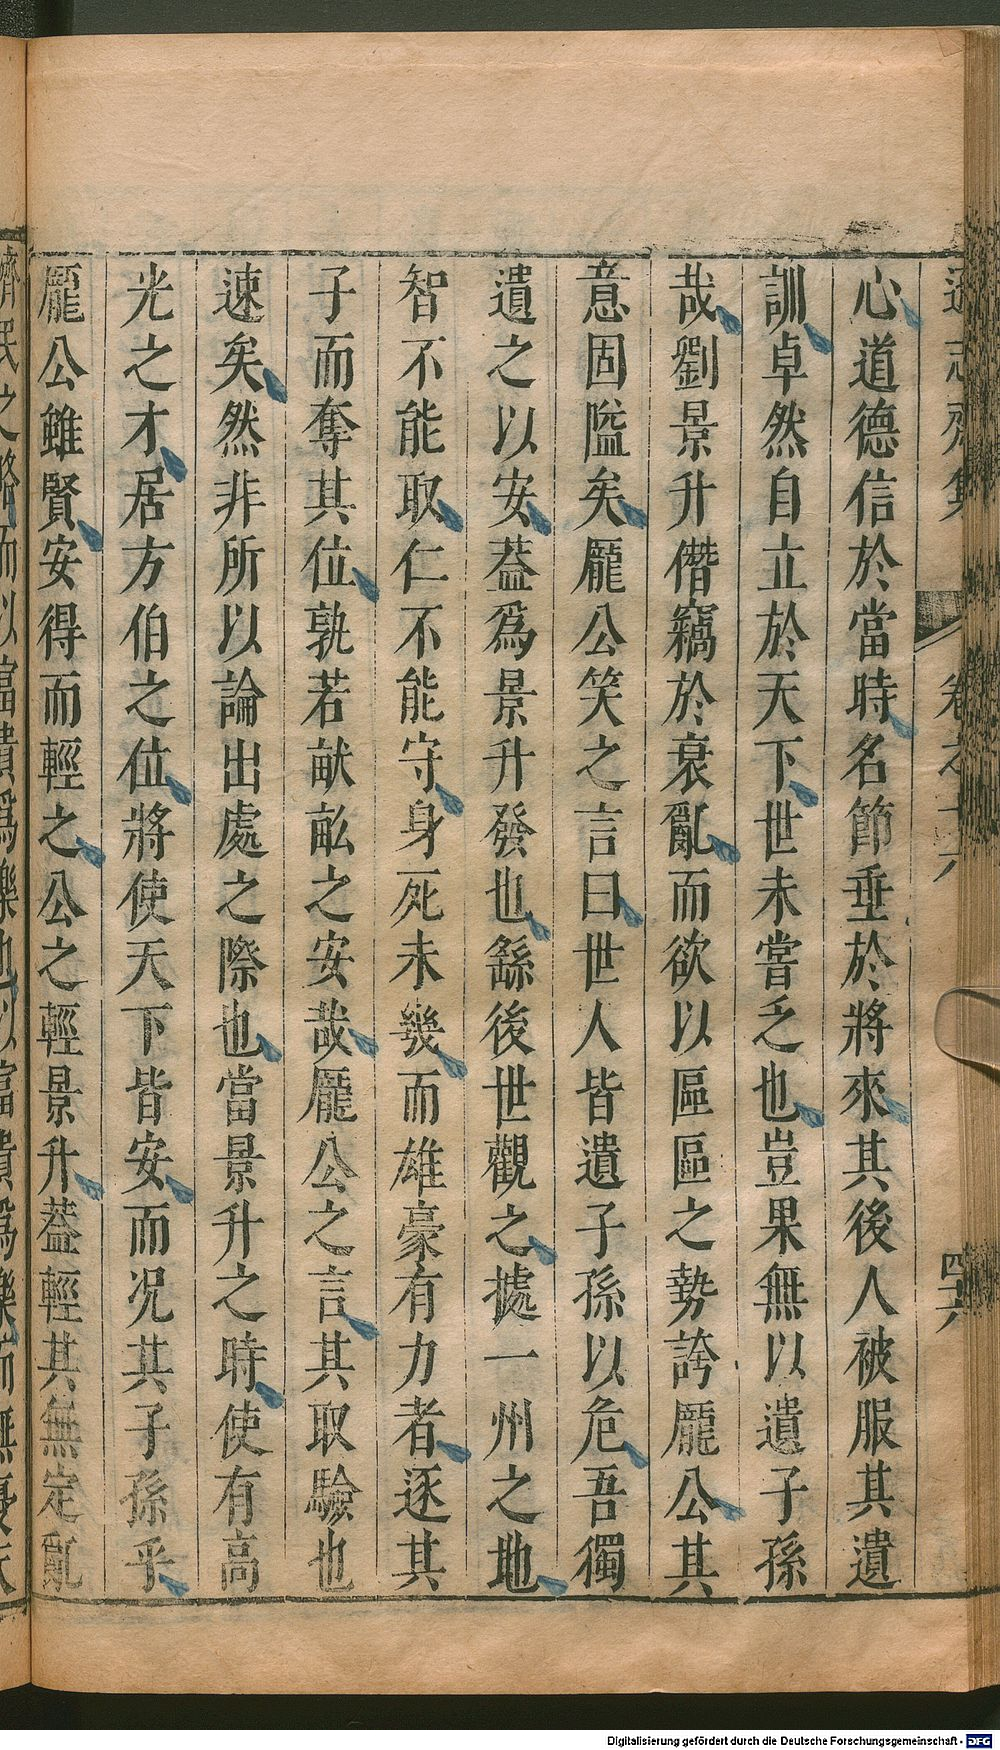 遜志齋集 卷之十六 四六
心道德信於當時名節垂於將來其後人被服其遺
訓卓然自立於天下世未嘗乏也豈果無以遺子孫
哉劉景升僭竊於衰亂而欲以區區之勢誇龐公其
意固隘矣龐公笑之言曰世人皆遺子孫以危吾獨
遺之以安葢爲景升發也繇後世觀之據一州之地
智不能取仁不能守身死未幾而雄豪有力者逐其
子而奪其位孰若畎畝之安哉龐公之言其取驗也
速矣然非所以論出處之際也當景升之時使有高
光之才居方伯之位將使天下皆安而况其子孫乎
龐公雖賢安得而輕之公之輕景升葢輕其無定亂
濟民之略而以富貴爲樂也以富貴爲樂而無憂天
Digitalisierung gefördert durch die Deutsche Forschungsgemeinschaft - DFG